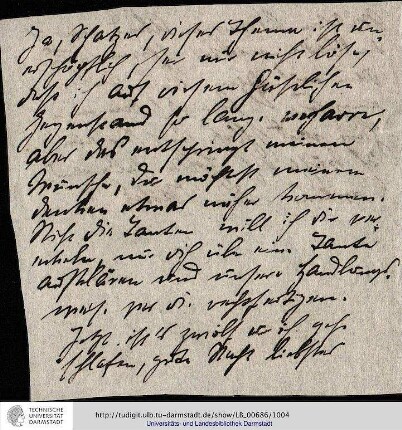 Ja, Schatzes, dieses Thema ist un
erschöpflich sei mir nicht böse,
daß ich auf diesem häßlichen
Gegenstand so lang verharre,
aber das entspringt meinem
Wunsche, du möchtest meinem
denken etwas näher kommen.
Nicht die Tanten will ich dir ver
ekeln, nur dich über eine Tante
aufklären und unsere Handlungs
weise vor dir rechtfertigen.
Jetzt ist's zwölf und ich geh
schlafen, gute Nacht liebster
TECHNISCHE
UNIVERSITÄT
DARMSTADT
http://tudigit.ulb.tu-darmstadt.de/show/LB_00686/1004
Universitäts- und Landesbibliothek Darmstadt